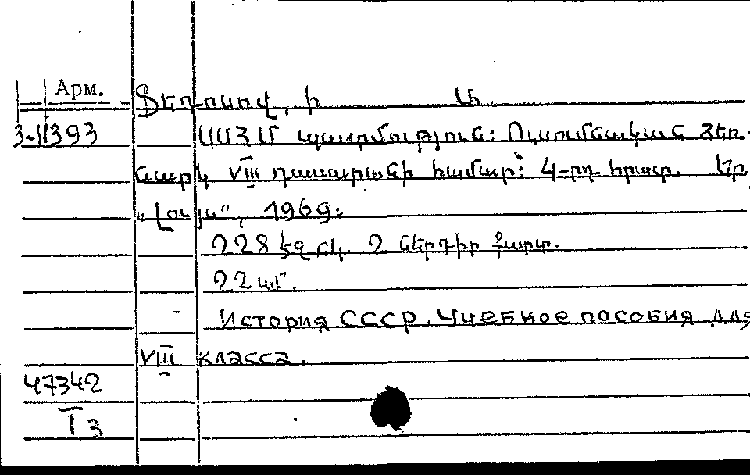 Арм.
Ֆեդոսով, Ի. Ա.
3-11393
ՍՍՀՄ պատմություն: Ուսումնական ձեռ-
նարկ VIII դասարանի համար: 4-րդ հրատ. Եր,
„Լույս", 1969:
228 էջ, 2 ներդիր քարտ.
22 սմ.
История СССР. Учебное пособия для
VIII класса.
47342
I з